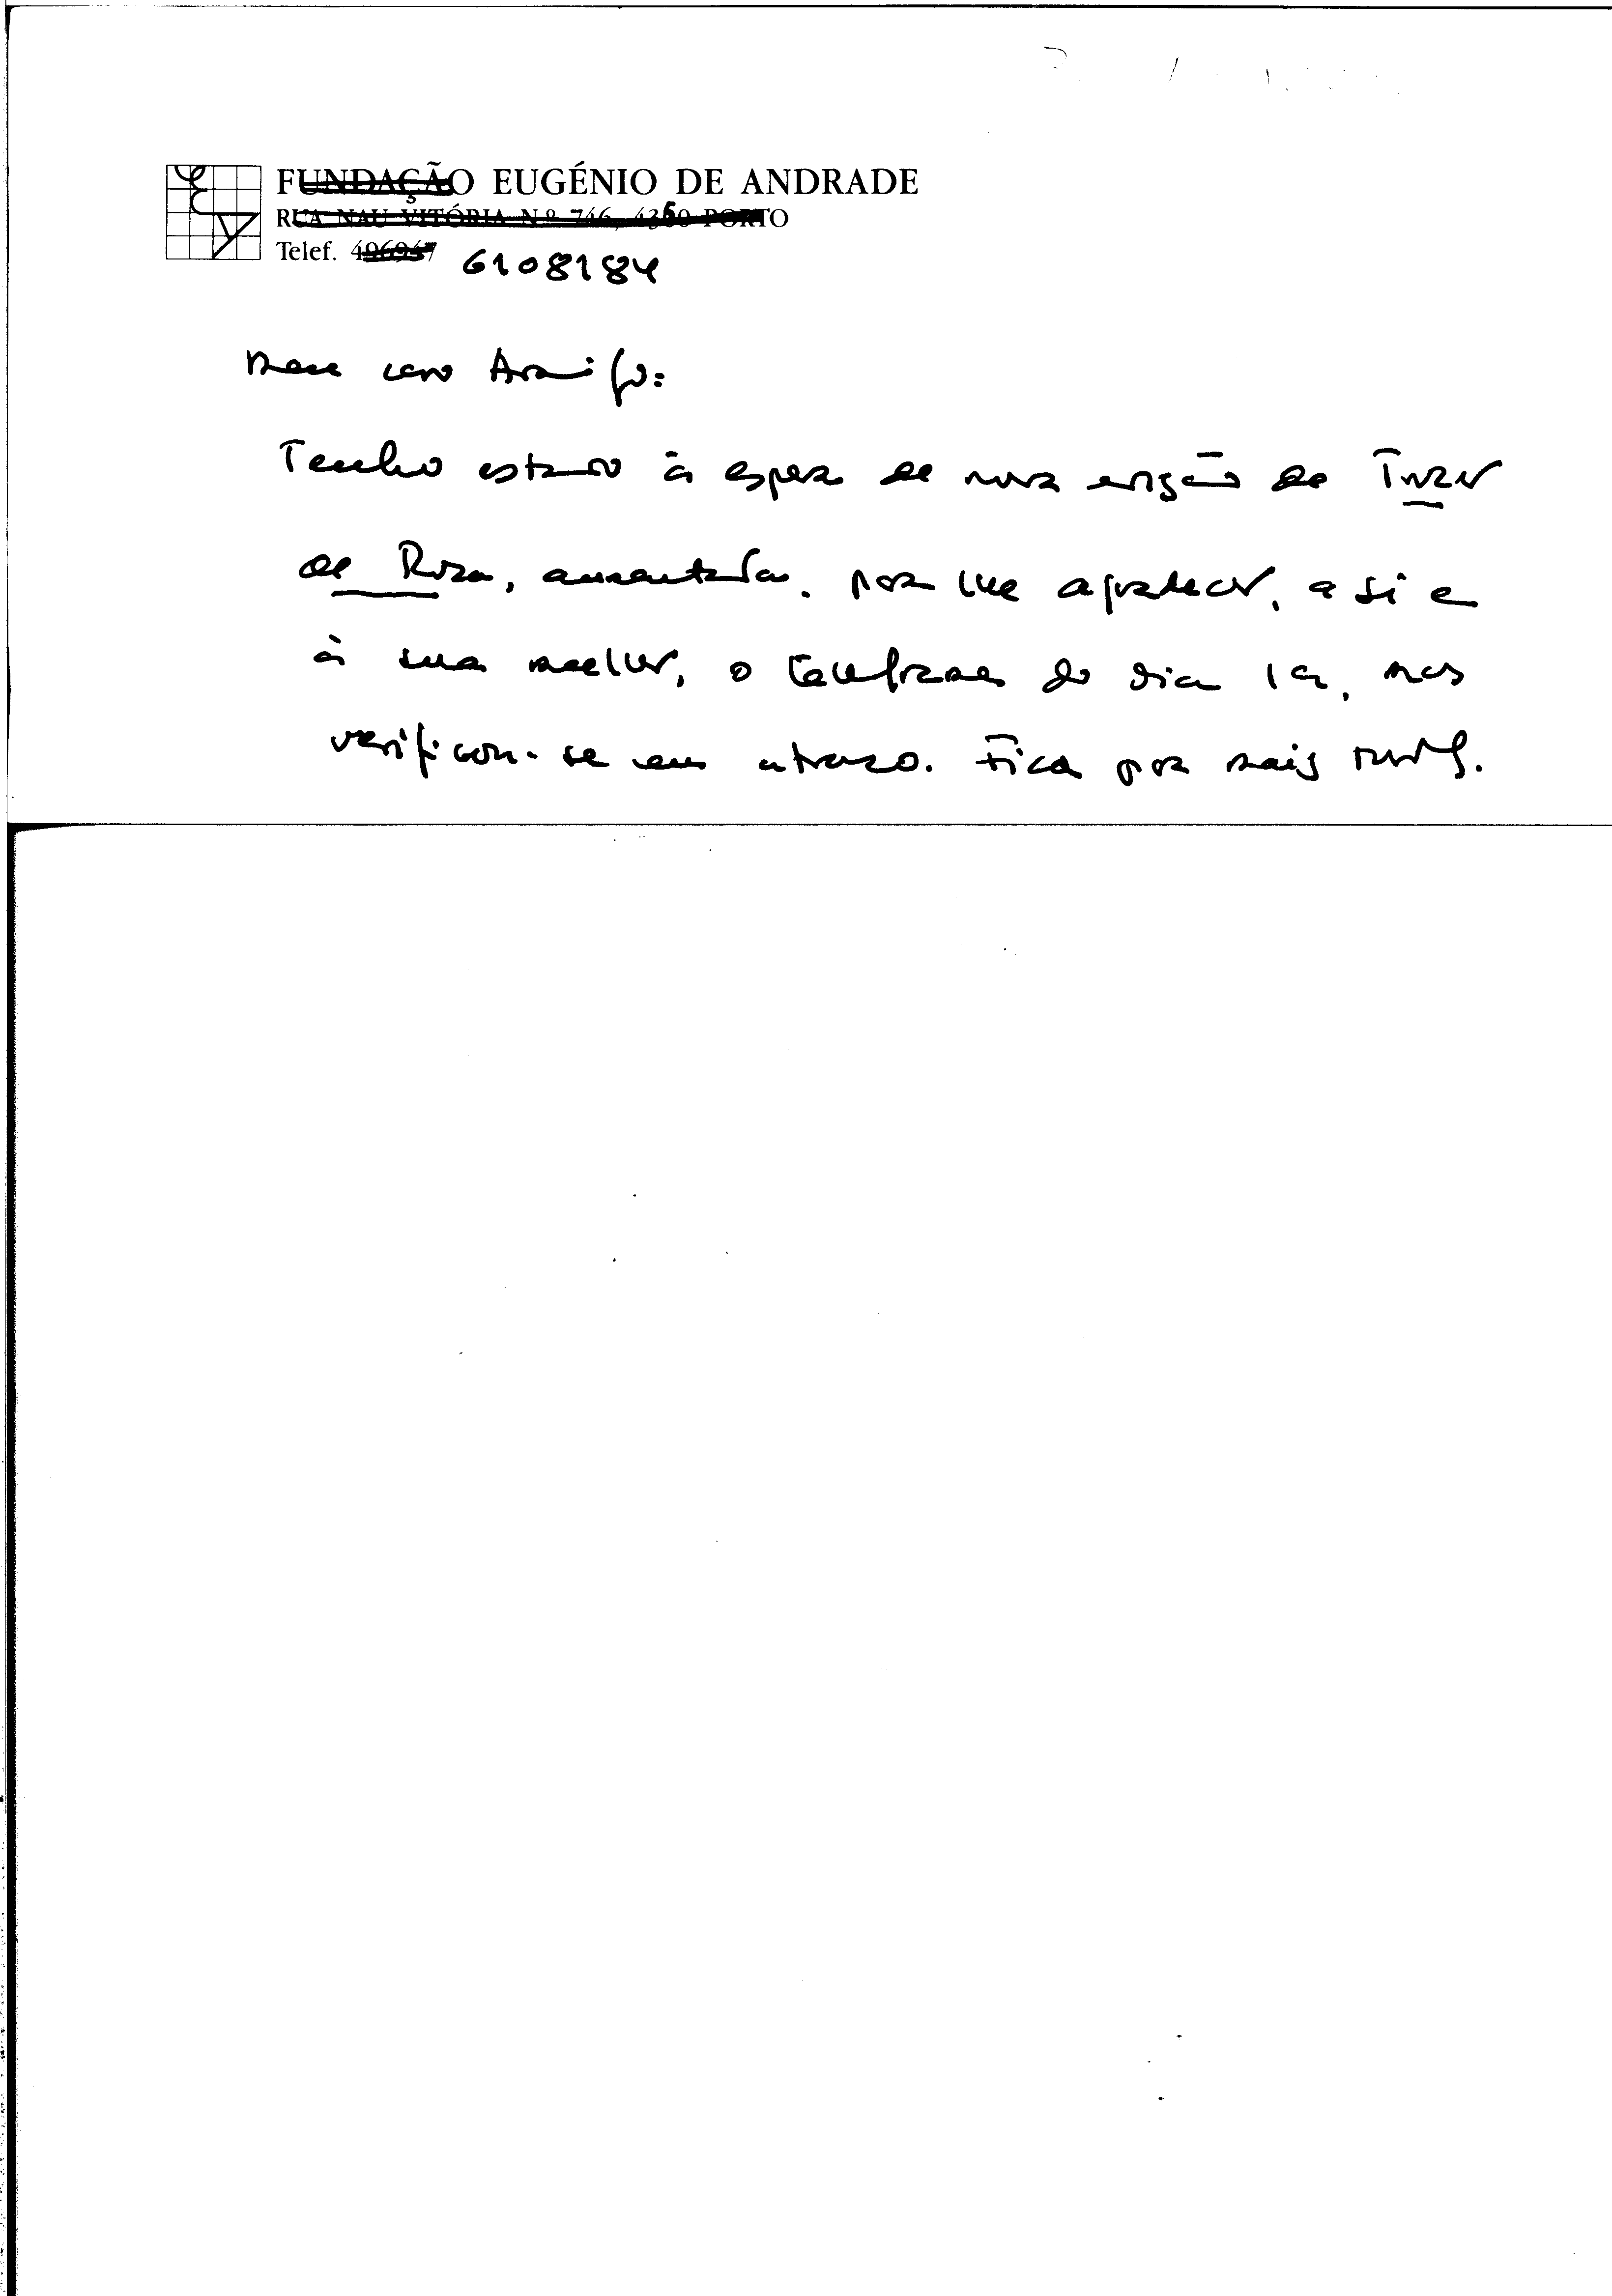 FUNDAÇÃO EUGÉNIO DE ANDRADE
RUA NAU VITÓRIA N.º 746, 4350 PORTO
Telef. 496947 6108184
Meu caro Amigo:
Tenho estado à espera de nova edição do Tutor
de Rosa, aumentada, para lhe agradecer, a si e
à sua mulher, o telefonema do dia 19, mas
verificou-se um atraso. Fica para mais tarde.